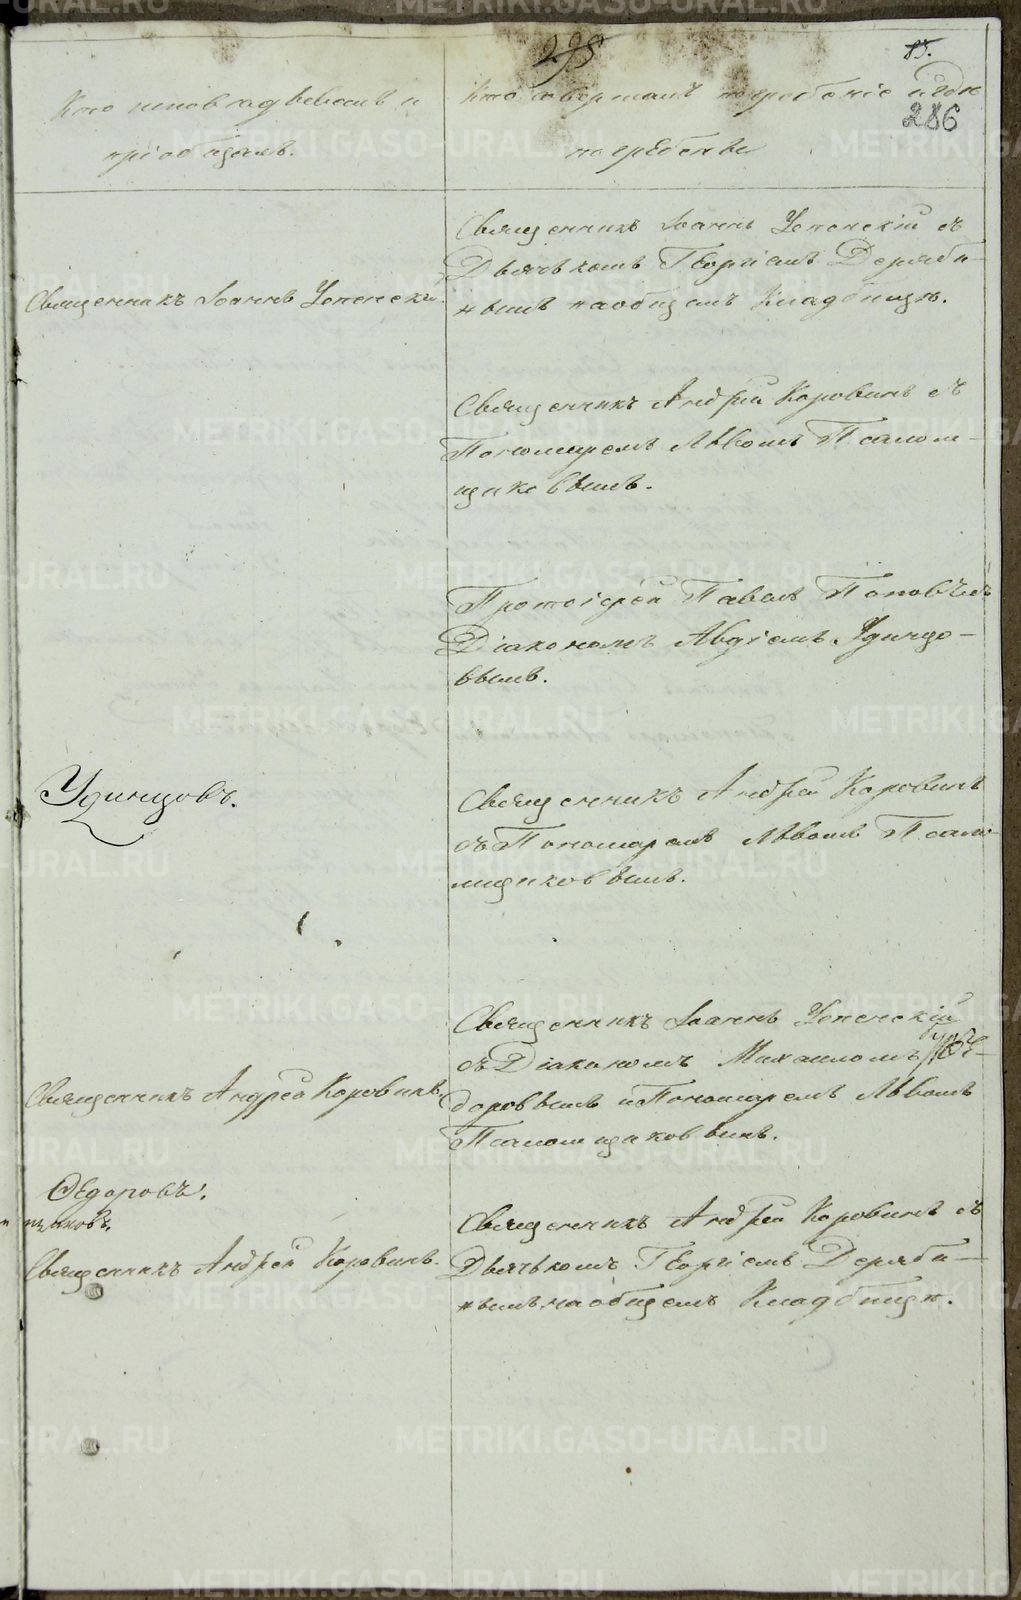 295
85.
286
Кто исповѣдывалъ и
пріобщалъ.
Кто совершалъ погребеніе и гдѣ
погребены
Священникъ Іоаннъ Успенскій.
Священникъ Іоаннъ Успенскій съ
Дьячькомъ Георгіемъ Деряби-
нымъ на общемъ Кладбищѣ.
Священникъ Андрей Коровинъ съ
Пономаремъ Львомъ Псалом-
щиковымъ.
Протоіерей Павелъ Поповъ съ
Діакономъ Авдіемъ Удинцо-
вымъ.
Удинцовъ.
Священникъ Андрей Коровинъ
съ Пономаремъ Львомъ Псало-
мщиковымъ.
Священникъ Андрей Коровинъ.
Священникъ Іоаннъ Успенскій
съ Діакономъ Михаиломъ Ѳе-
доровымъ и Пономаремъ Львомъ
Псаломщиковымъ.
Ѳедоровъ.
щиковъ.
Священникъ Андрей Коровинъ.
Священникъ Андрей Коровинъ съ
Дьячькомъ Георгіемъ Деряби-
нымъ на общемъ Кладбищѣ.
METRIKI.GASO-URAL.RU